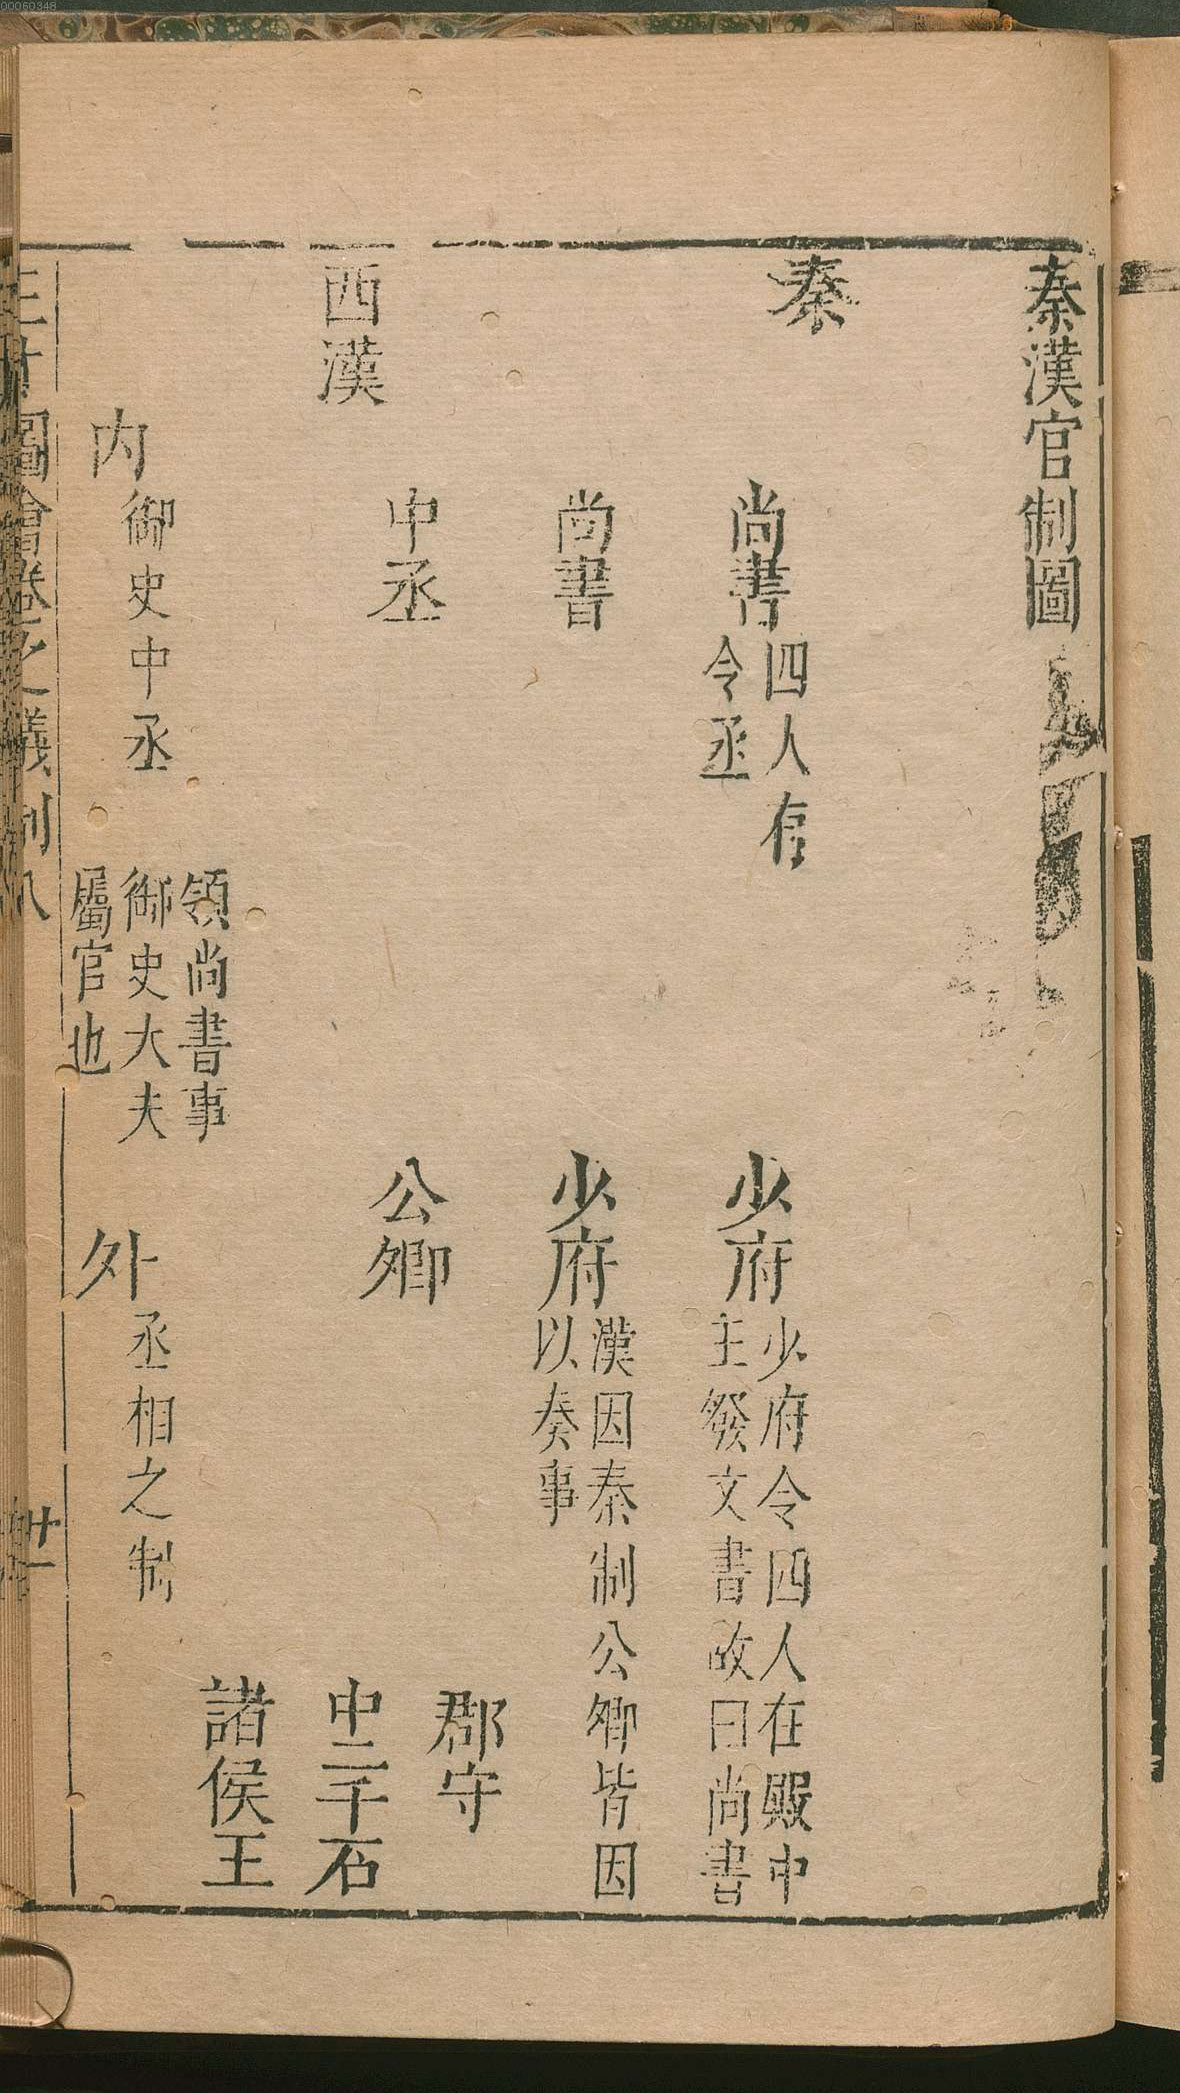 00060348
秦漢官制圖
秦
尚書 四人有
令丞
少府 少府令四人在殿中
主發文書故曰尚書
尚書
少府 漢因秦制公卿皆因
以奏事
西漢
中丞
公卿
郡守
中二千石
諸侯王
內 御史中丞
領尚書事
御史大夫
屬官也
外 丞相之制
圖會卷之儀制八